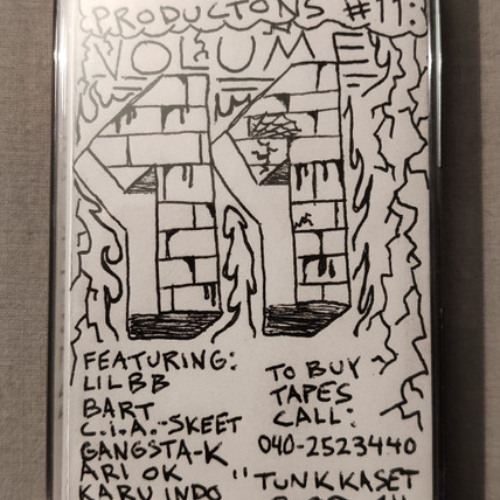 PRODUCTONS #11:
VOLUME
11
FEATURING:
LIL BB
BART
C.i.A.-SKEET
GANGSTA-K
ARI OK
KARU INDO
TO BUY
TAPES
CALL:
040-2523440
"TUNKKASET